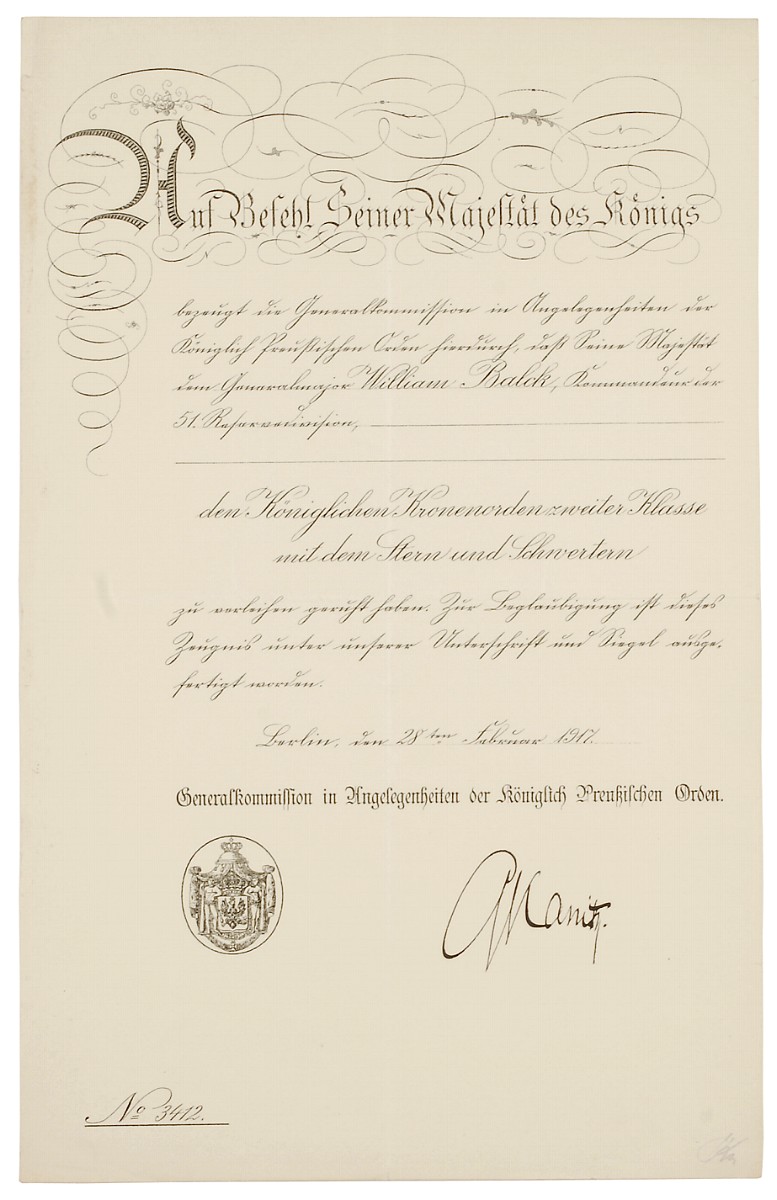 Auf Befehl Seiner Majestät des Königs
bezeugt die Generalkommission in Angelegenheiten der
Königlich Preußischen Orden hierdurch, daß Seine Majestät
dem Generalmajor William Balck, Kommandeur der
51. Reservedivision,
den Königlichen Kronenorden zweiter Klasse
mit dem Stern und Schwertern
zu verleihen geruht haben. Zur Beglaubigung ist dieses
Zeugnis unter unserer Unterschrift und Siegel ausge-
fertigt worden.
Berlin, den 28ten Februar 1917.
Generalkommission in Angelegenheiten der Königlich Preußischen Orden.
GKanitz.
No 3412.